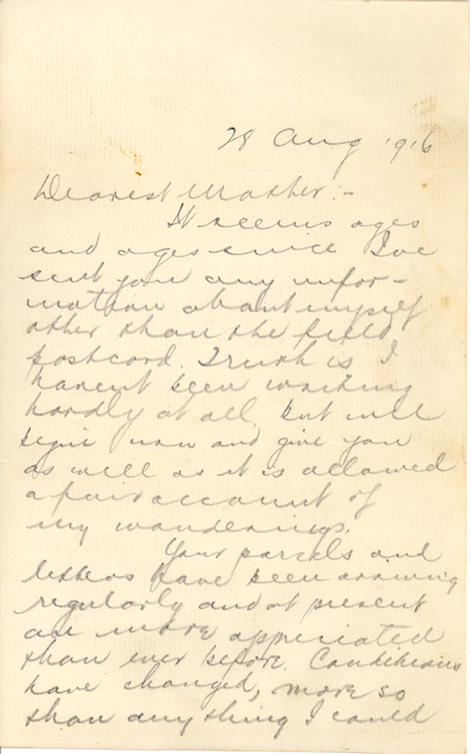 28 Aug 1916
Dearest Mother:-
It seems ages
and ages since I've
sent you any infor-
mation about myself
other than the field
postcard. Truth is I
havent been writing
hardly at all, but will
begin now and give you
as well as it is allowed
a fair account of
my wanderings.
Your parcels and
letters have been arriving
regularly and at present
are more appreciated
than ever before. Conditions
have changed, more so
than anything I could